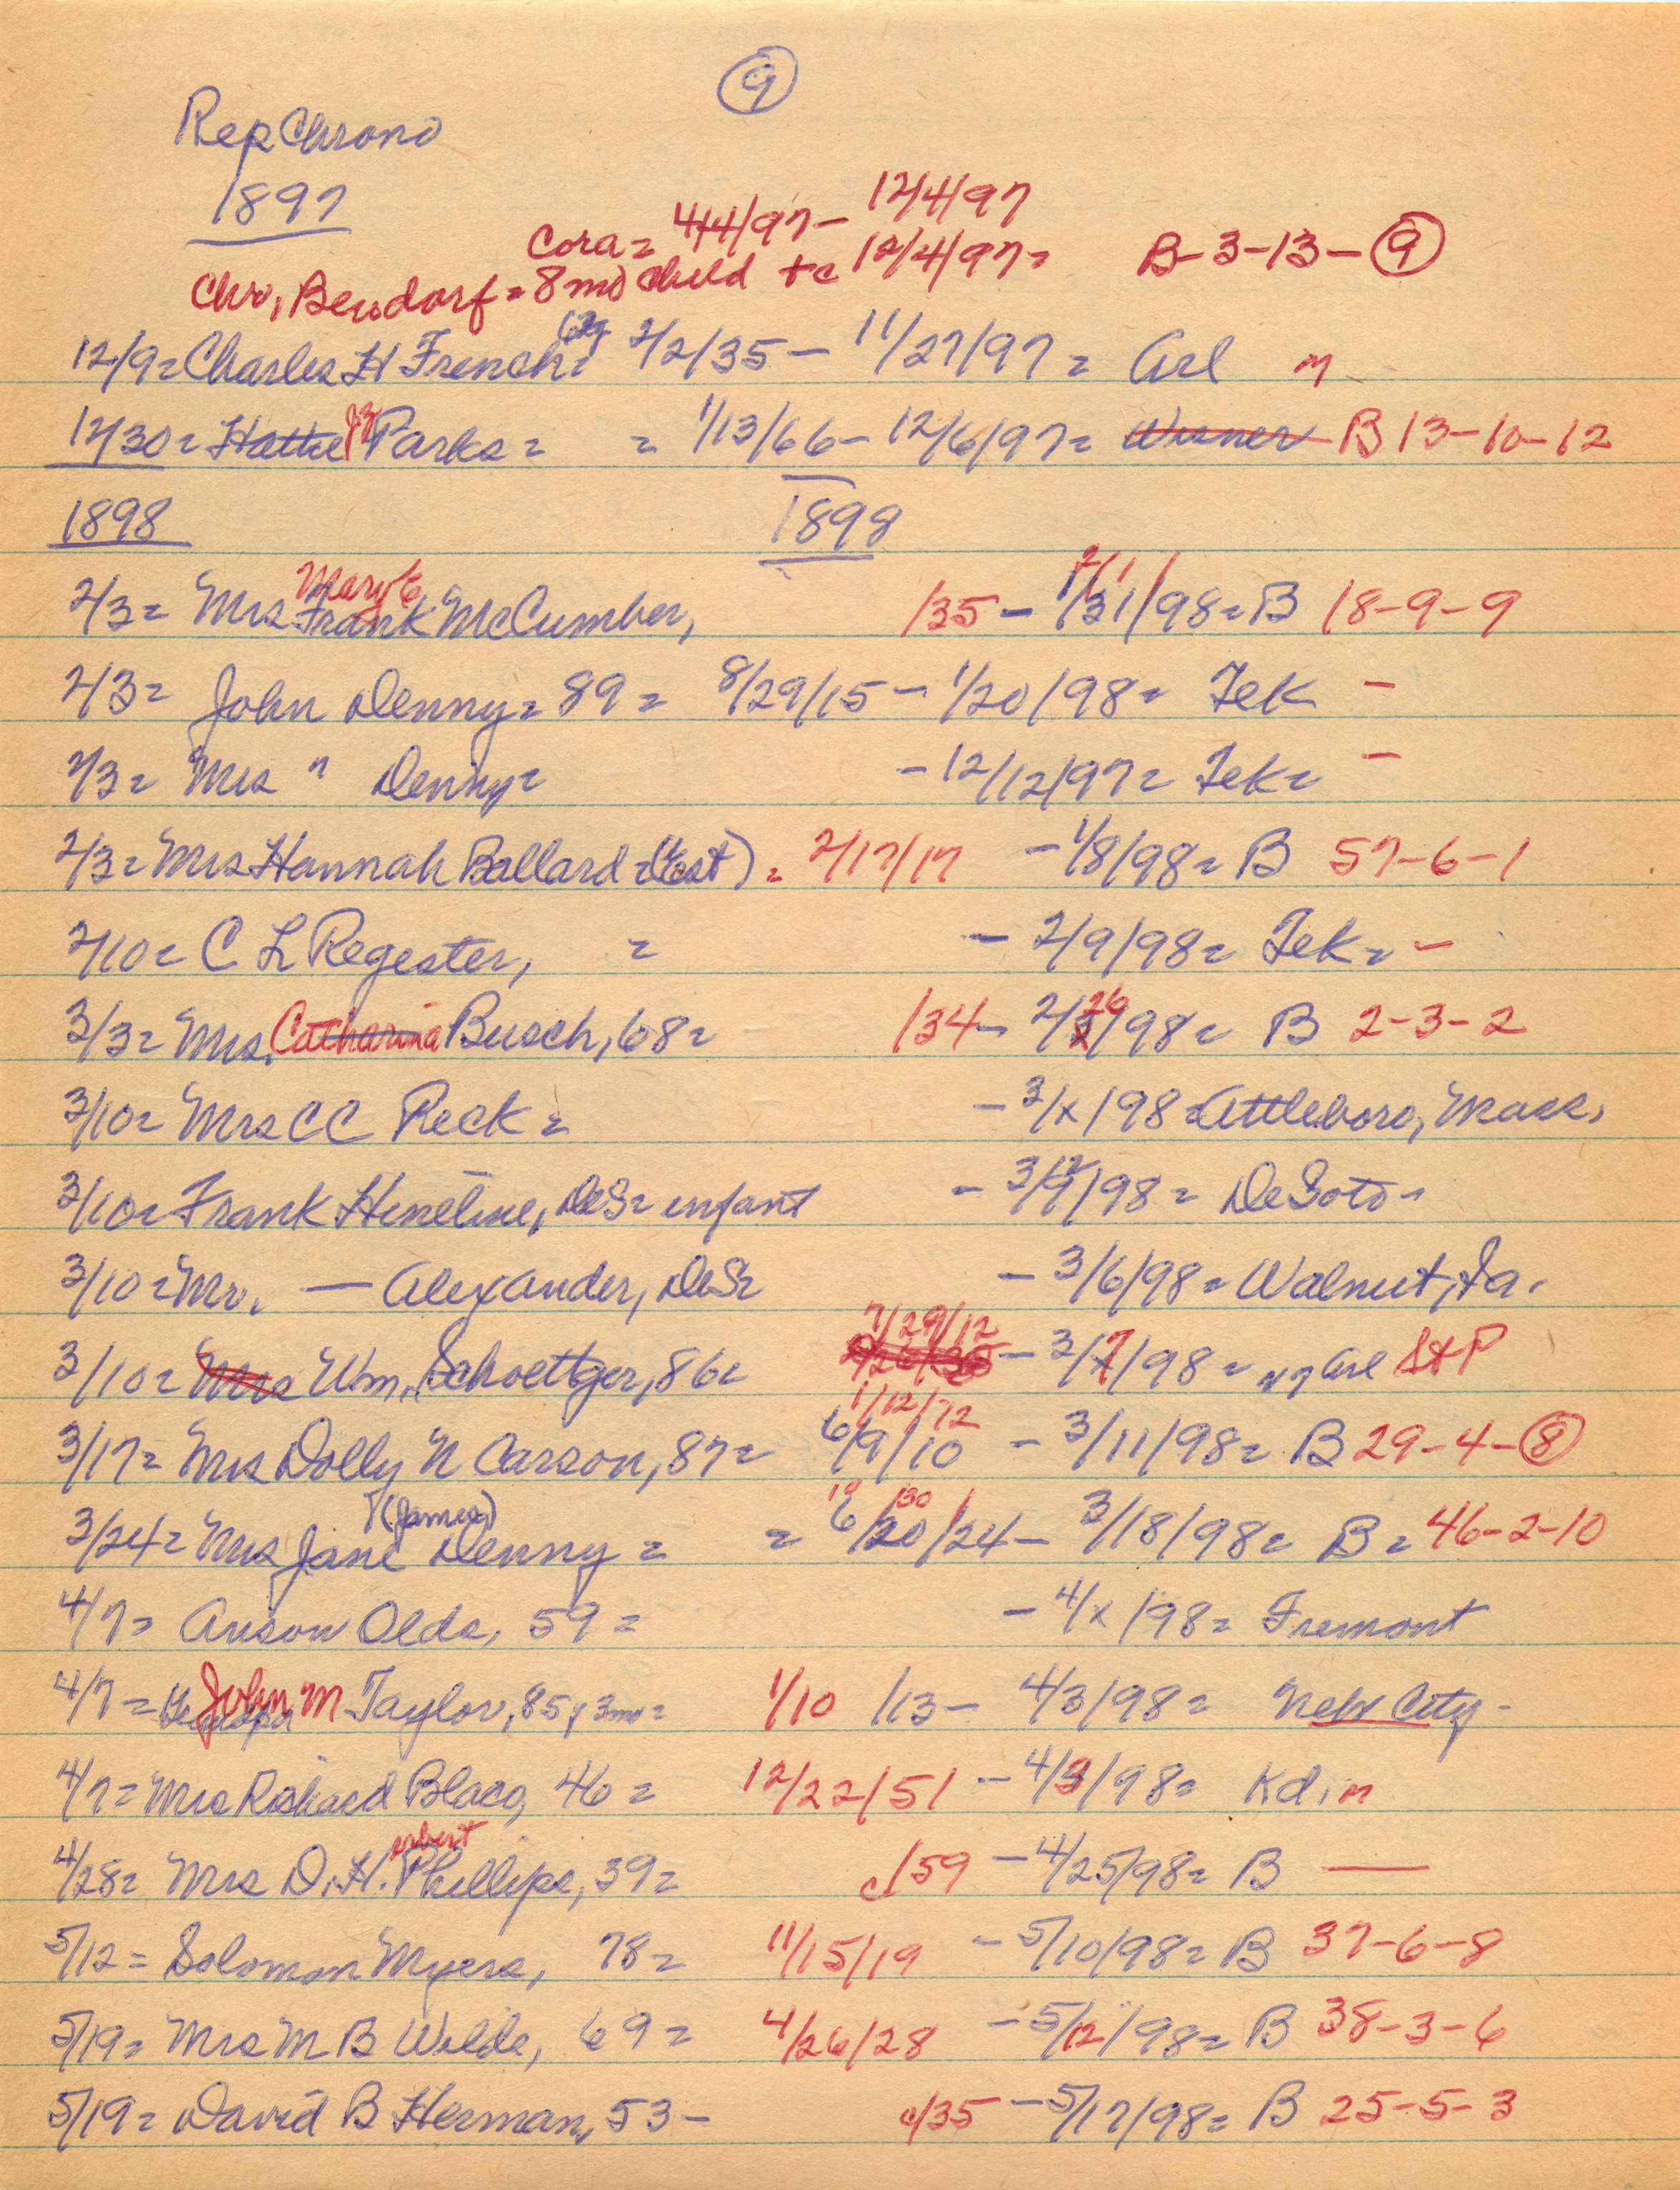 9
Rep Chrono
1897
Cora = 4/4/97 - 12/4/97
Chr. Bendorf = 8 mo child + c 12/4/97 = B-3-13-9
12/9 = Charles H French = 2/2/35 - 11/27/97 = Arl m
12/30 = Hattie Parks = = 1/13/66 - 12/6/97 = Wisner B 13-10-12
1898 1898
2/3 = Mrs Frank Mary E McCumber, /35 - 1/31/98 = B 18-9-9
2/3 = John Denny = 89 = 8/29/15 - 1/20/98 = Tek -
2/3 = Mrs " Denny = - 12/12/97 = Tek = -
2/3 = Mrs Hannah Ballard = (Est) = 2/17/17 - 1/8/98 = B 57-6-1
2/10 = C L Regester, = - 2/9/98 = Tek = -
3/3 = Mrs. Catharina Busch, 68 = /34 - 2/26/98 = B 2-3-2
3/10 = Mrs C C Reck = - 3/x/98 = Attleboro, Mass.
3/10 = Frank Hineline, DeS = infant - 3/9/98 = DeSoto -
3/10 = Mr. — Alexander, DeS = - 3/6/98 = Walnut, Ia.
3/10 = Mrs Wm. Schoettger, 86 = 7/29/12 - 3/7/98 = nr Arl St P
3/17 = Mrs Dolly N Carson, 87 = 6/9/10 1/12/12 - 3/11/98 = B 29-4-8
3/24 = Mrs Jane (James) Denny = = 6/20/24 - 3/18/98 = B = 46-2-10
4/7 = Anson Olds, 59 = - 4/x/98 = Fremont
4/7 = John M Taylor, 85y 3mo = 1/10 /13 - 4/3/98 = Nebr City -
4/7 = Mrs Richard Blaco, 46 = 12/22/51 - 4/3/98 = Kd. m
4/28 = Mrs D. H. erbert Phillips, 39 = c/59 - 4/25/98 = B —
5/12 = Solomon Myers, 78 = 11/15/19 - 5/10/98 = B 37-6-8
5/19 = Mrs M B Wilds, 69 = 4/26/28 - 5/12/98 = B 38-3-6
5/19 = David B Herman, 53 - c/35 - 5/17/98 = B 25-5-3